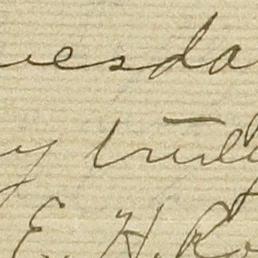 uesda
y truly
E. H. Ro